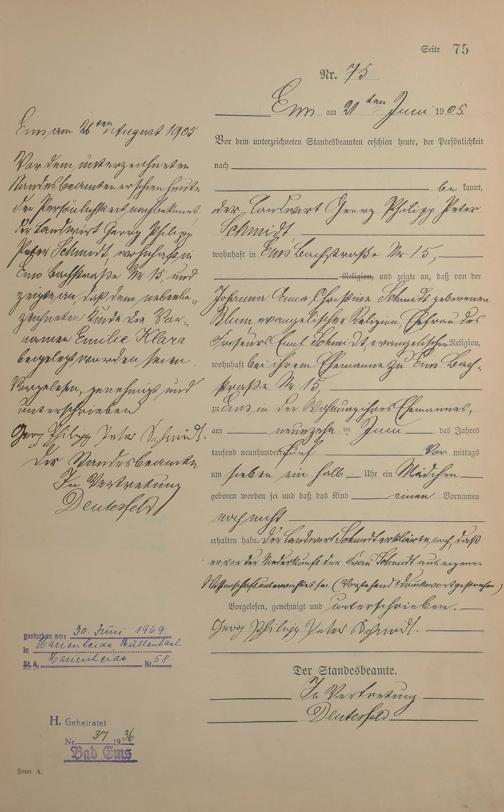 Seite 75
Nr. 75
Ems am 21ten Juni 1905.
Vor dem unterzeichneten Standesbeamten erschien heute, der Persönlichkeit
nach
be kannt,
der Landwirt Georg Philipp Peter
Schmidt
wohnhaft in Ems Bachstraße Nr 15,
Religion, und zeigte an, daß von der
Johanna Anna Christine Schmidt geborenen
Blum evangelischer Religion, Ehefrau des
Friseurs Emil Schmidt evangelischer Religion,
wohnhaft bei ihrem Ehemanne zu Ems Bach-
straße Nr 15,
zu Ems in der Wohnung ihres Ehemannes,
am neunzehnten Juni des Jahres
tausend neunhundert fünf Vor mittags
um sieben ein halb Uhr ein Mädchen
geboren worden sei und daß das Kind einen Vornamen
noch nicht
erhalten habe. Der Landwirt Schmidt erklärte noch, daß
er von der Niederkunft der Frau Schmidt aus eigener
Wissenschaft unterrichtet sei. (Vorstehend 1 Druckwort gestrichen)
Vorgelesen, genehmigt und unterschrieben.
Georg Philipp Peter Schmidt.
Der Standesbeamte.
In Vertretung
Ems am 26ten August 1905
Vor dem unterzeichneten
Standesbeamten erschien heute
der Persönlichkeit nach bekannt
der Landwirt Georg Philipp
Peter Schmidt, wohnhaft in
Ems Bachstraße Nr 15, und
zeigte an, daß dem nebenbe-
zeichneten Kinde die Vor-
namen Emilie Klara
beigelegt worden seien.
Vorgelesen, genehmigt und
unterschrieben
Georg Philipp Peter Schmidt.
Der Standesbeamte
In Vertretung
gestorben am: 30. Juni 1969
in Marienheide,
St. A. Marienheide Nr. 58
H. Geheiratet
Nr. 37 1936
Bad Ems
Form A.